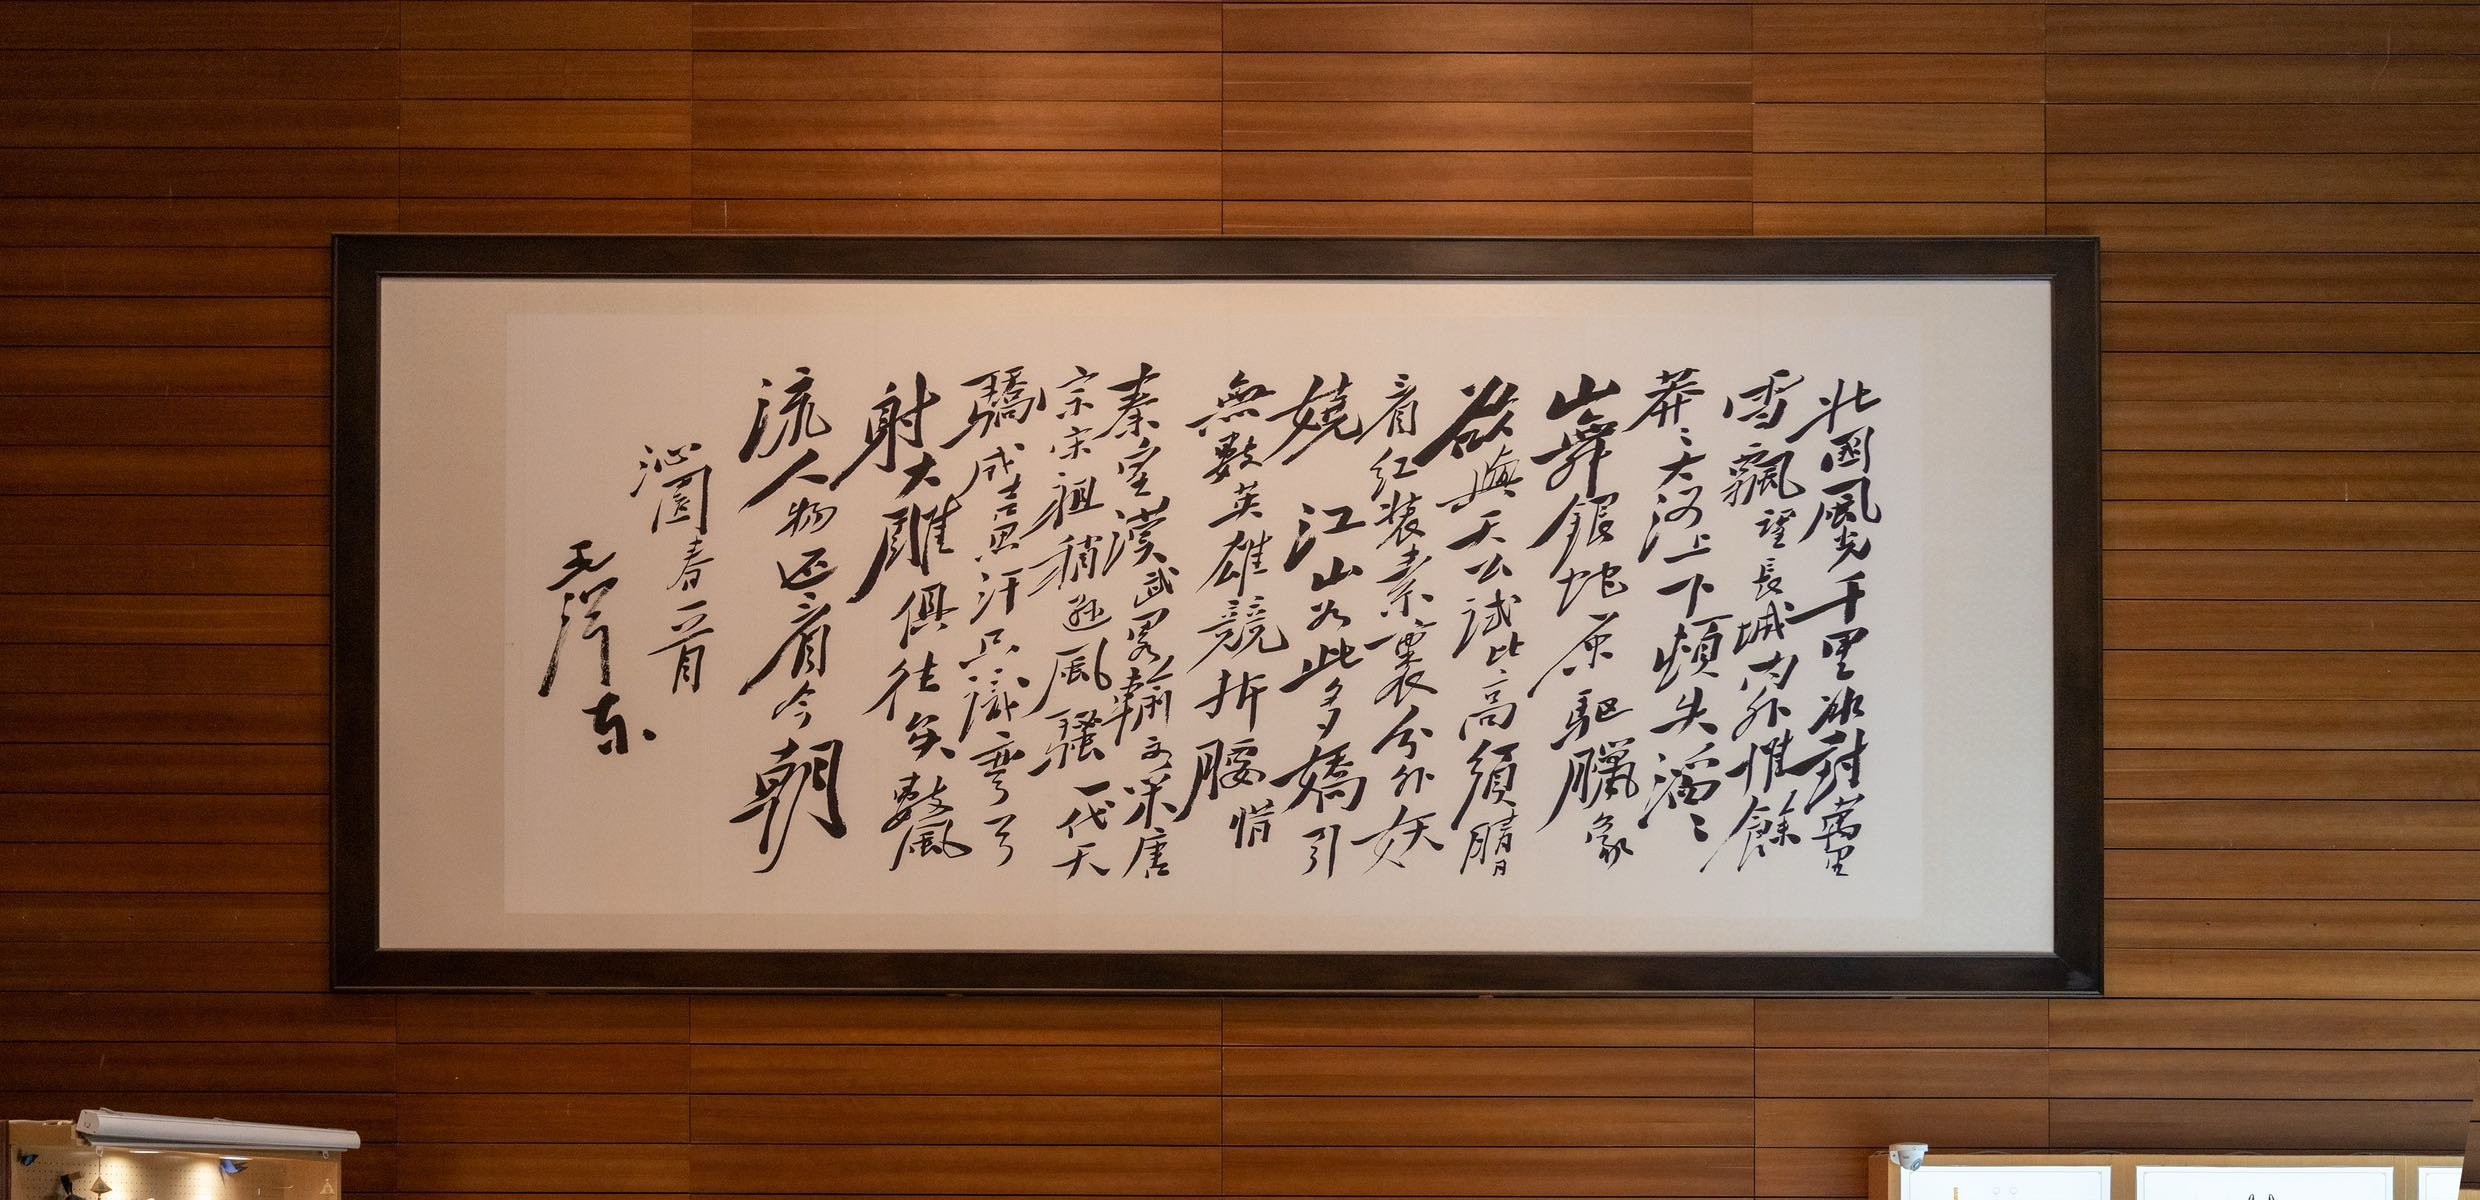 北國風光千里冰封萬里
雪飄望長城内外惟餘
莽〻大河上下頓失滔〻
山舞銀蛇原驅臘象
欲與天公試比高須晴日
看红装素裹分外妖
嬈江山如此多嬌引
無數英雄競折腰惜
秦皇漢武畧輸文采唐
宗宋祖稍遜風騷一代天
驕成吉思汗只識彎弓
射大雕俱往矣數風
流人物还看今朝
沁園春一首
毛澤东